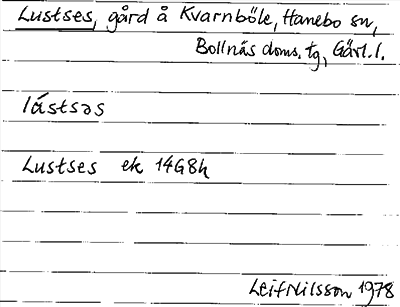 Lustses, gård å Kvarnböle, Hanebo sn,
Bollnäs doms. tg, Gävl. l.
lástsəs
Lustses ek 14G8h
Leif Nilsson 1978